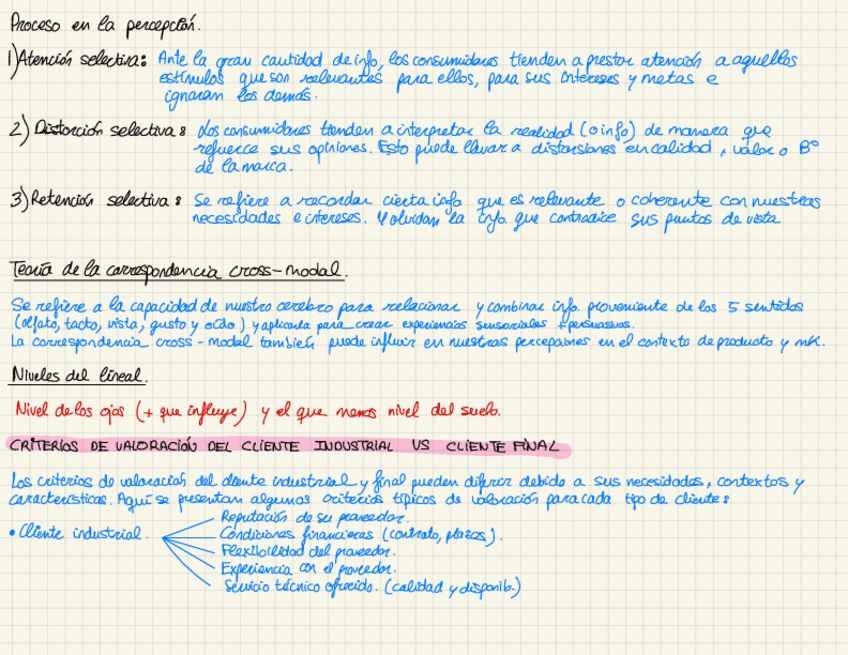 Proceso en la percepción.
1) Atención selectiva: Ante la gran cantidad de info, los consumidores tienden a prestar atención a aquellos
estímulos que son relevantes para ellos, para sus intereses y metas e
ignoran los demás.
2) Distorción selectiva: Los consumidores tienden a interpretar la realidad (o info) de manera que
refuerce sus opiniones. Esto puede llevar a distorsiones en calidad, valor o Bº
de la marca.
3) Retención selectiva: Se refiere a recordar cierta info que es relevante o coherente con nuestras
necesidades e intereses. Y olvidan la info que contradice sus puntos de vista
Teoría de la correspondencia cross-modal.
Se refiere a la capacidad de nuestro cerebro para relacionar y combinar info proveniente de los 5 sentidos
(olfato, tacto, vista, gusto y oído) y aplicarla para crear experiencias sensoriales + persuasivas.
La correspondencia cross-modal también puede influir en nuestras percepciones en el contexto de producto y mk.
Niveles del lineal.
Nivel de los ojos (+ que influye) y el que menos nivel del suelo.
CRITERIOS DE VALORACIÓN DEL CLIENTE INDUSTRIAL VS CLIENTE FINAL
Los criterios de valoración del cliente industrial y final pueden diferir debido a sus necesidades, contextos y
características. Aquí se presentan algunos criterios típicos de valoración para cada tipo de cliente:
• Cliente industrial.
Reputación de su proveedor.
Condiciones financieras (contrato, plazos).
Flexibilidad del proveedor.
Experiencia con el proveedor.
Servicio técnico ofrecido. (calidad y disponib.)